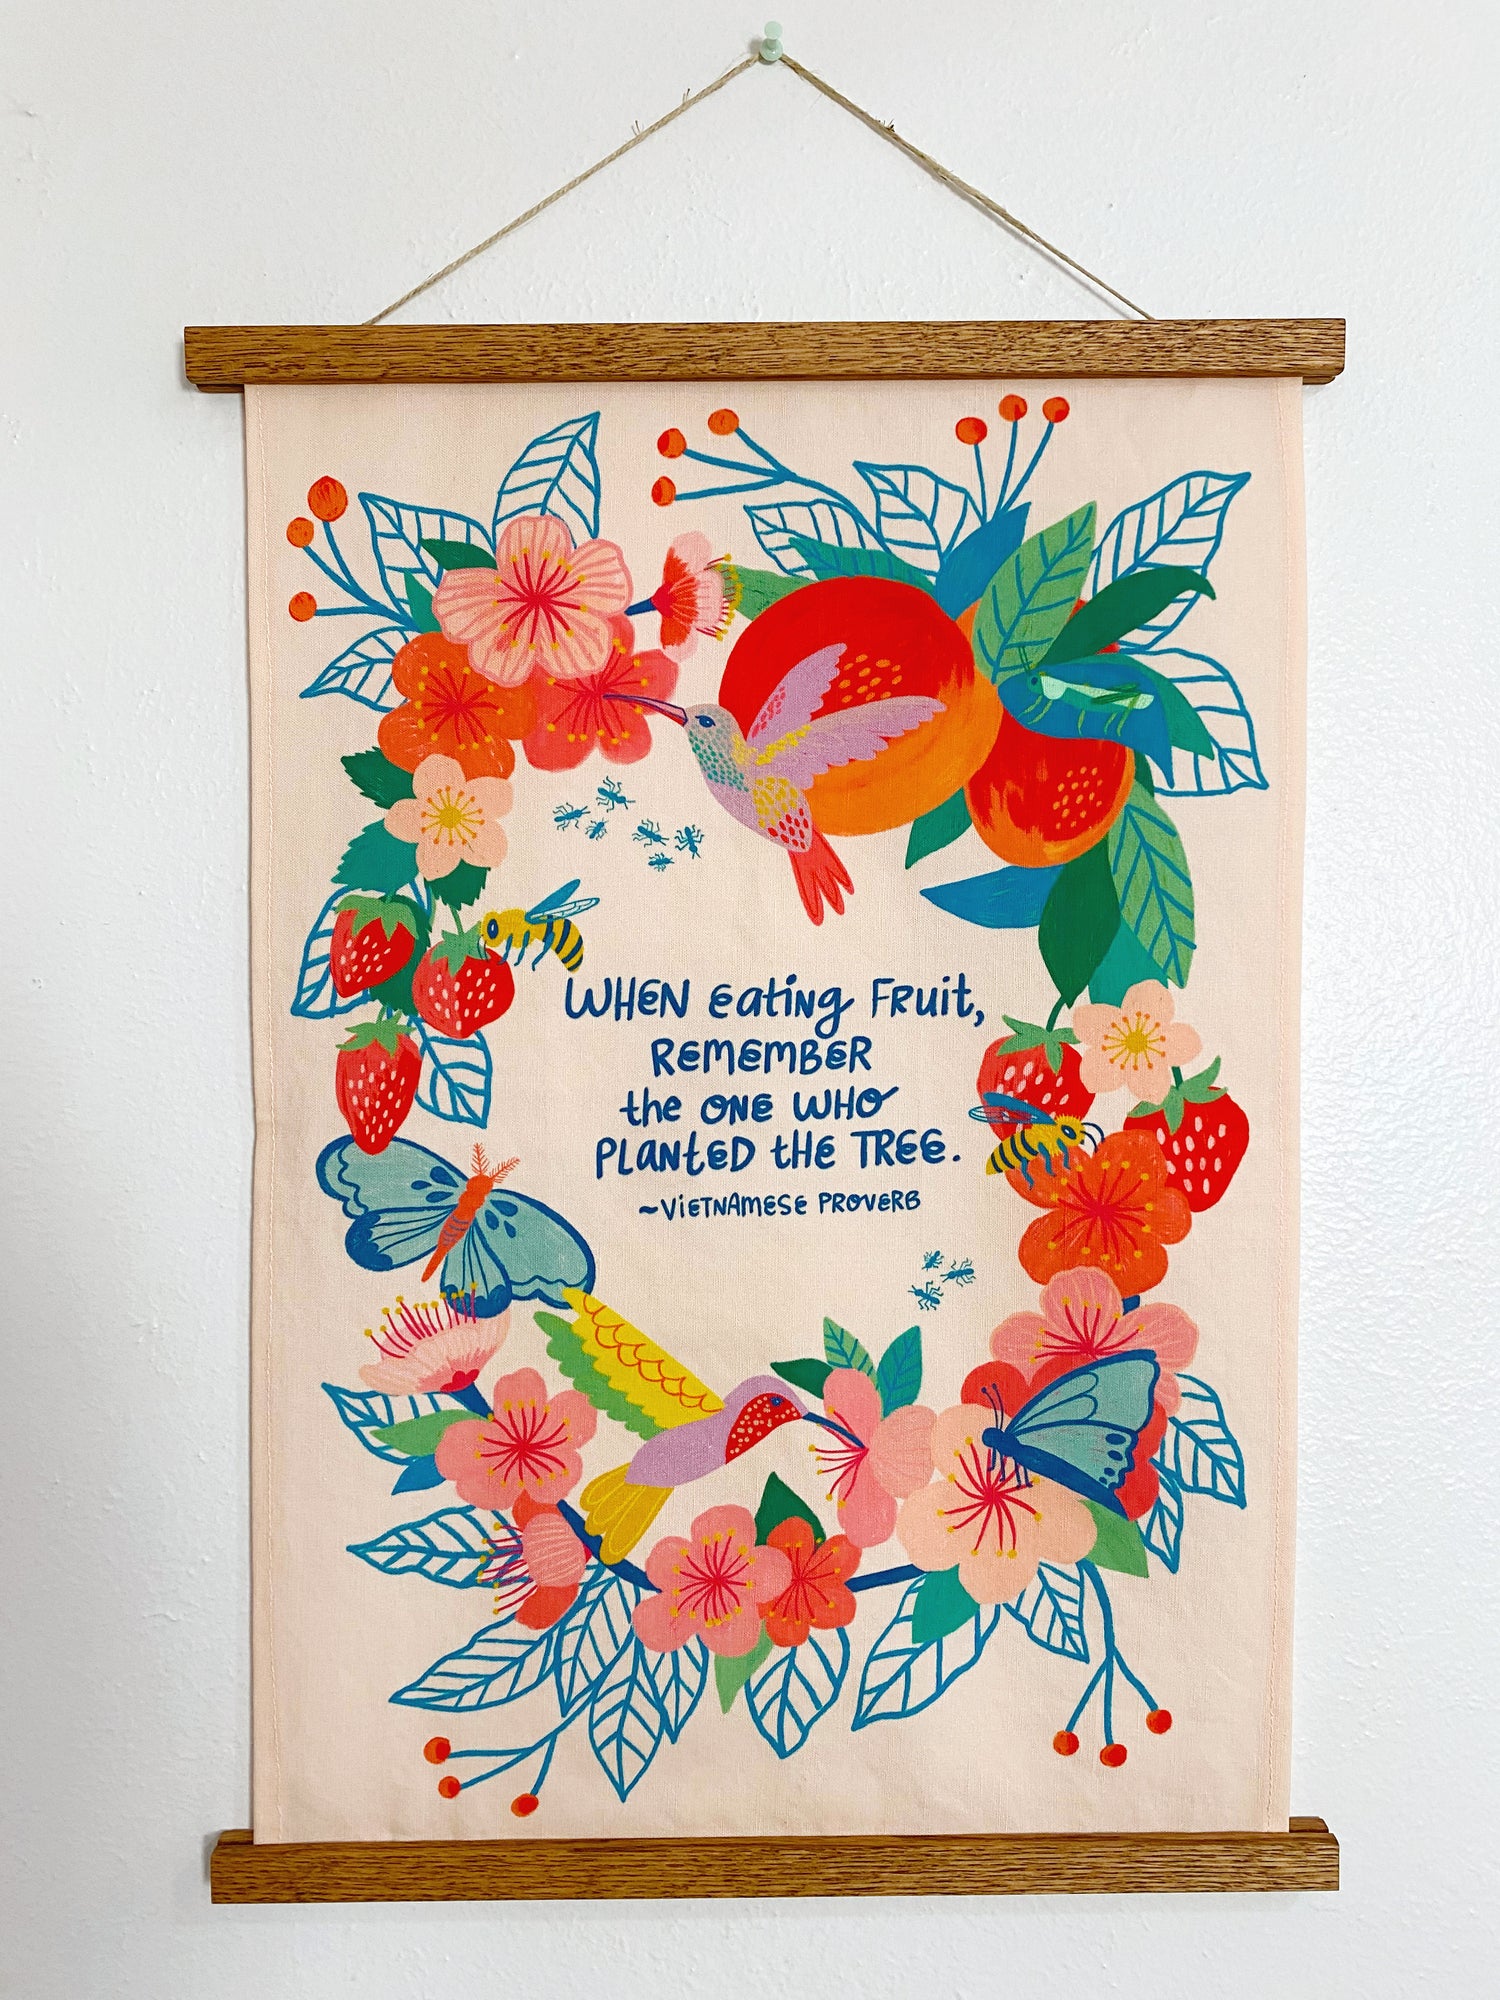 WHEN eating Fruit,
REMEMBER
the ONE WHO
PLANTED THE TREE.
~VIETNAMESE PROVERB